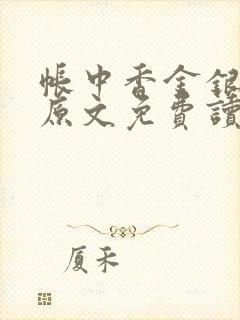 帳中香金銀
原文免費讀
厦禾